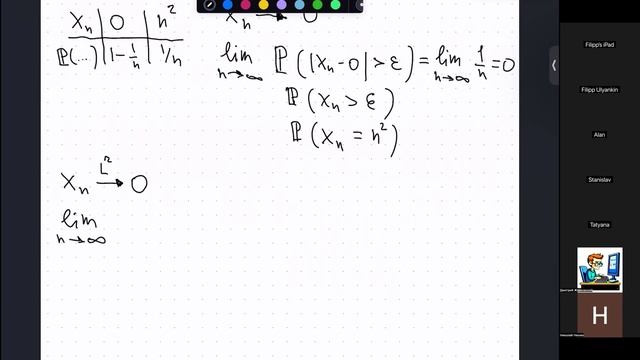 Xₙ | 0 | n²
ℙ(...) | 1 - 1/n | 1/n
Xₙ → 0
lim n→∞ ℙ(|Xₙ - 0| > ε) = lim n→∞ 1/n = 0
ℙ(Xₙ > ε)
ℙ(Xₙ = n²)
Xₙ →^{L²} 0
lim n→∞
Filipp's iPad
Filipp Ulyankin
Alan
Stanislav
Tatyana
H